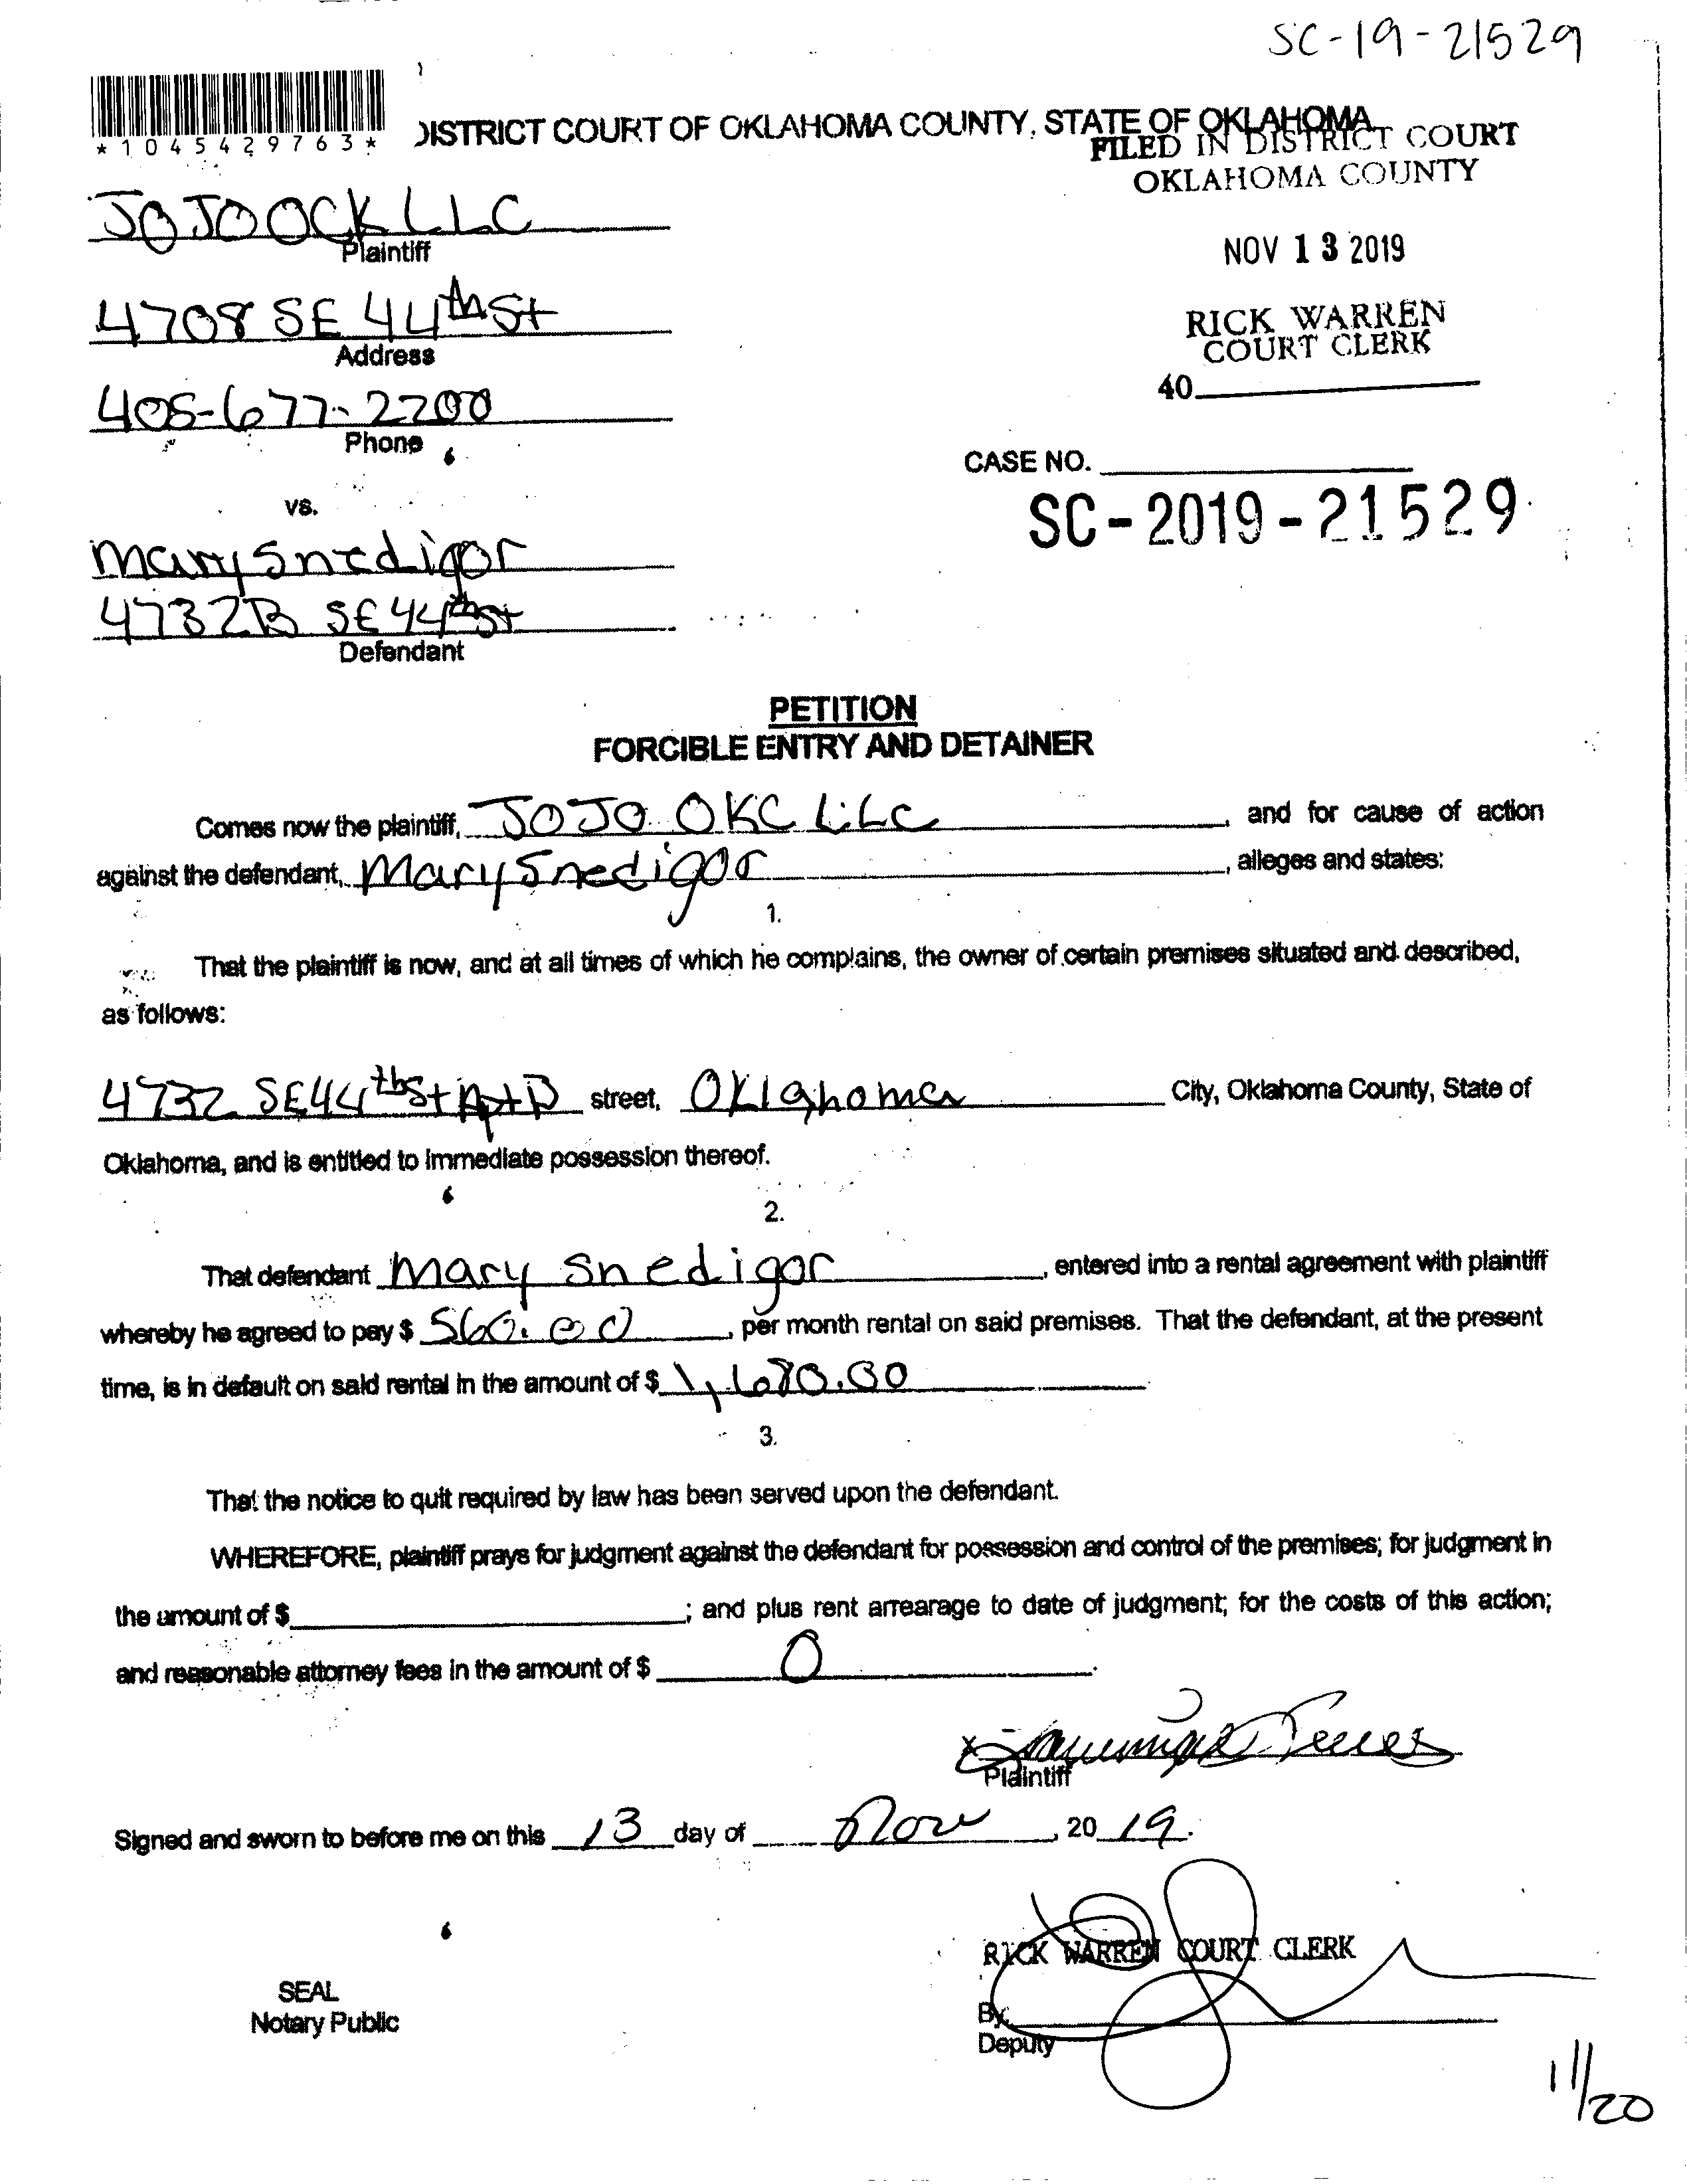 SC-19-21529
*1045429763*
DISTRICT COURT OF OKLAHOMA COUNTY, STATE OF OKLAHOMA
FILED IN DISTRICT COURT
OKLAHOMA COUNTY
JOJO OCK LLC
Plaintiff
NOV 13 2019
4708 SE 44th St
Address
RICK WARREN
COURT CLERK
40
405-677-2200
Phone
CASE NO.
SC-2019-21529
vs.
Mary Snedigor
4732B SE 44th St
Defendant
PETITION
FORCIBLE ENTRY AND DETAINER
Comes now the plaintiff, JOJO OKC LLC, and for cause of action
against the defendant, Mary Snedigor, alleges and states:
1.
That the plaintiff is now, and at all times of which he complains, the owner of certain premises situated and described,
as follows:
4732 SE 44th St Apt B street, Oklahoma City, Oklahoma County, State of
Oklahoma, and is entitled to immediate possession thereof.
2.
That defendant Mary Snedigor, entered into a rental agreement with plaintiff
whereby he agreed to pay $ 560.00, per month rental on said premises. That the defendant, at the present
time, is in default on said rental in the amount of $ 1,680.00.
3.
That the notice to quit required by law has been served upon the defendant.
WHEREFORE, plaintiff prays for judgment against the defendant for possession and control of the premises; for judgment in
the amount of $; and plus rent arrearage to date of judgment; for the costs of this action;
and reasonable attorney fees in the amount of $ 0.
X
Plaintiff
Signed and sworn to before me on this 13 day of Nov, 20 19.
RICK WARREN COURT CLERK
SEAL
Notary Public
By
Deputy
11/20